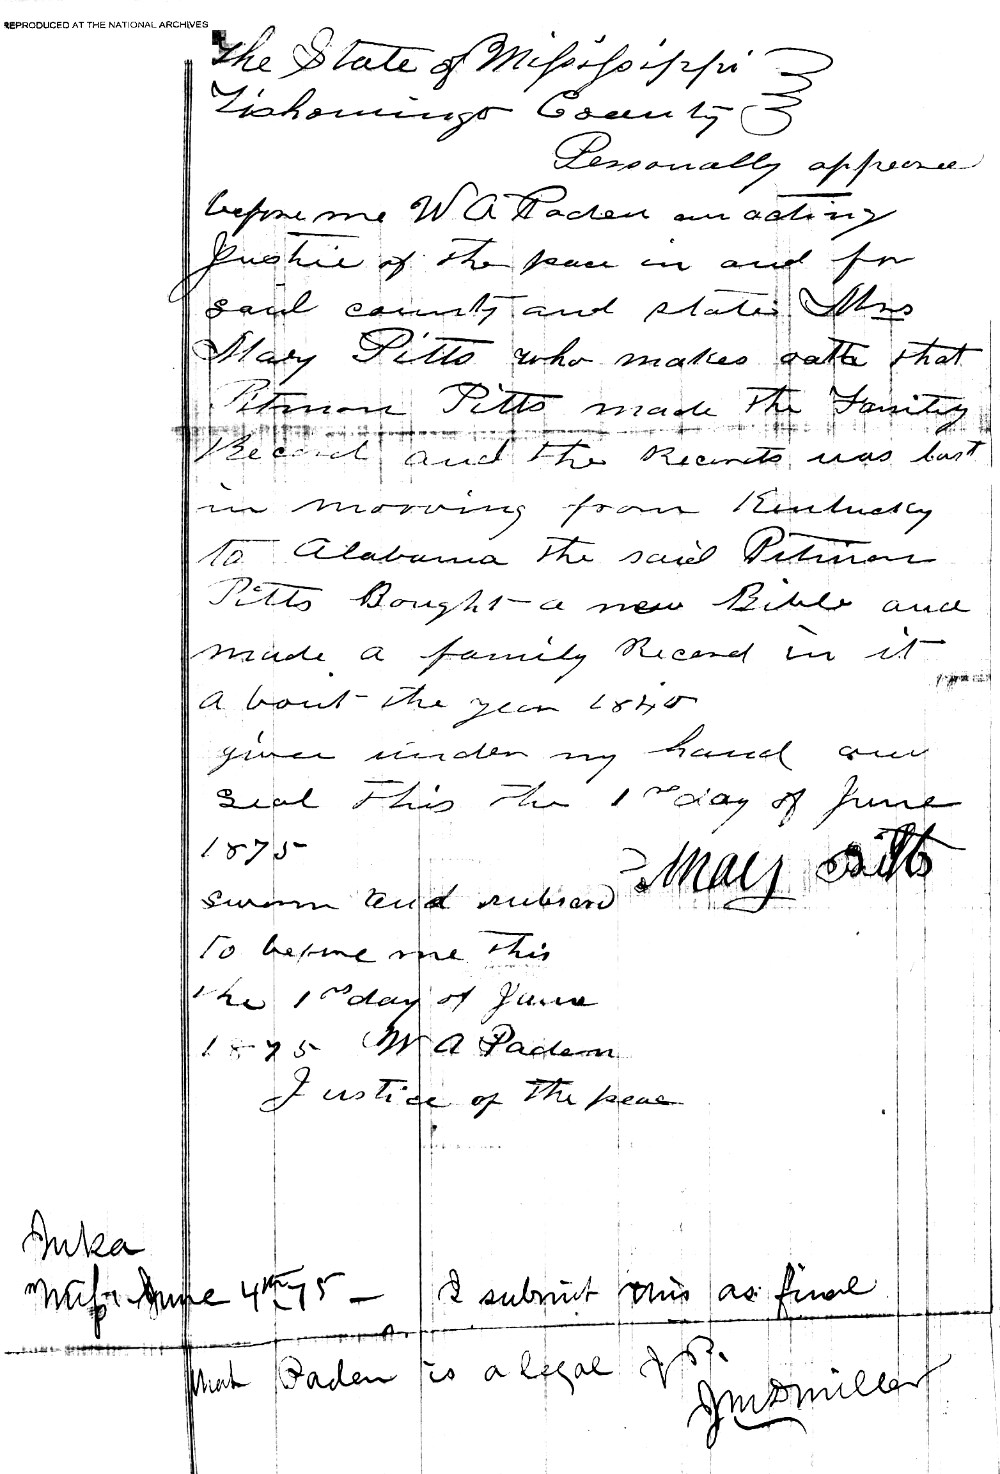 REPRODUCED AT THE NATIONAL ARCHIVES
The State of Mississippi
Tishomingo County
Personally appeared
before me W A Paden an acting
Justice of the peace in and for
said county and state Mrs
Mary Pitts who makes oath that
Pitmon Pitts made the Family
Record and the Records was lost
in moving from Kentucky
to Alabama the said Pitmon
Pitts Bought a new Bible and
made a family Record in it
A bout the year 1840
given under my hand and
Seal this the 1st day of June
1875
Mary Pitts
sworn and subscrd
to before me this
the 1st day of June
1875 W A Paden
Justice of the peace
Iuka
Miss June 4th 75 — I submit this as final
that Paden is a legal J P.
J M D Miller